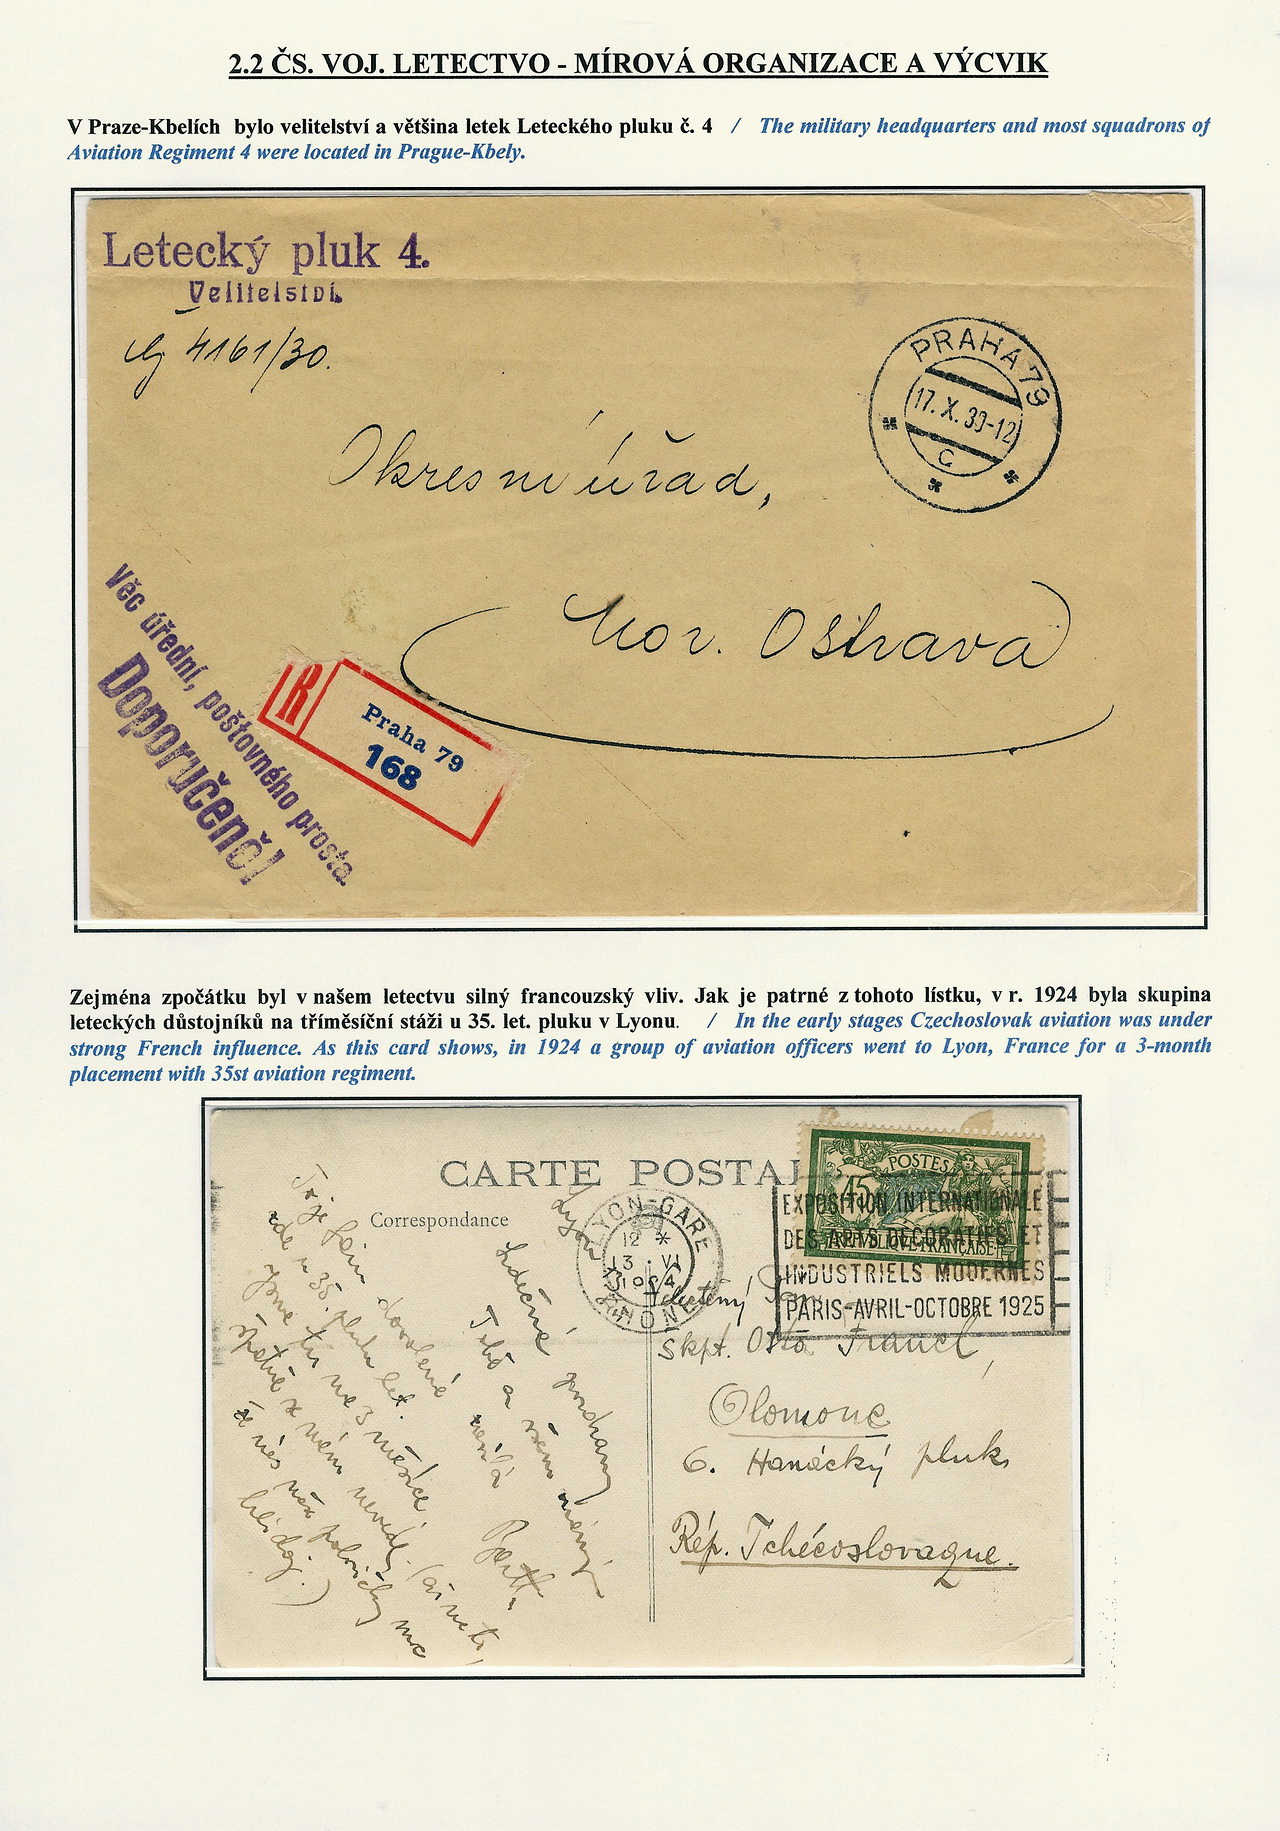 2.2 ČS. VOJ. LETECTVO - MÍROVÁ ORGANIZACE A VÝCVIK
V Praze-Kbelích bylo velitelství a většina letek Leteckého pluku č. 4 / The military headquarters and most squadrons of
Aviation Regiment 4 were located in Prague-Kbely.
Letecký pluk 4.
Velitelství.
4161/30.
PRAHA 79
17. X. 30-12
C
Okresní úřad,
Mor. Ostrava
Věc úřední, poštovného prosta.
Doporučeně!
R
Praha 79
168
Zejména zpočátku byl v našem letectvu silný francouzský vliv. Jak je patrné z tohoto lístku, v r. 1924 byla skupina
leteckých důstojníků na tříměsíční stáži u 35. let. pluku v Lyonu. / In the early stages Czechoslovak aviation was under
strong French influence. As this card shows, in 1924 a group of aviation officers went to Lyon, France for a 3-month
placement with 35st aviation regiment.
CARTE POSTAL
Correspondance
LYON-GARE
12 *
13 . VI
RHONE
POSTES
45
REPUBLIQUE FRANÇAISE
EXPOSITION INTERNATIONALE
DES ARTS DECORATIFS ET
INDUSTRIELS MODERNES
PARIS-AVRIL-OCTOBRE 1925
Lyon
Srdečné pozdravy
Tobě a všem známým
zasílá
dovolené
zde u 35. pluku let.
jsme tu na 3 měsíce.
skpt. Osta Francl,
Olomouc
6. Hanácký pluk
Rép. Tchécoslovaque.